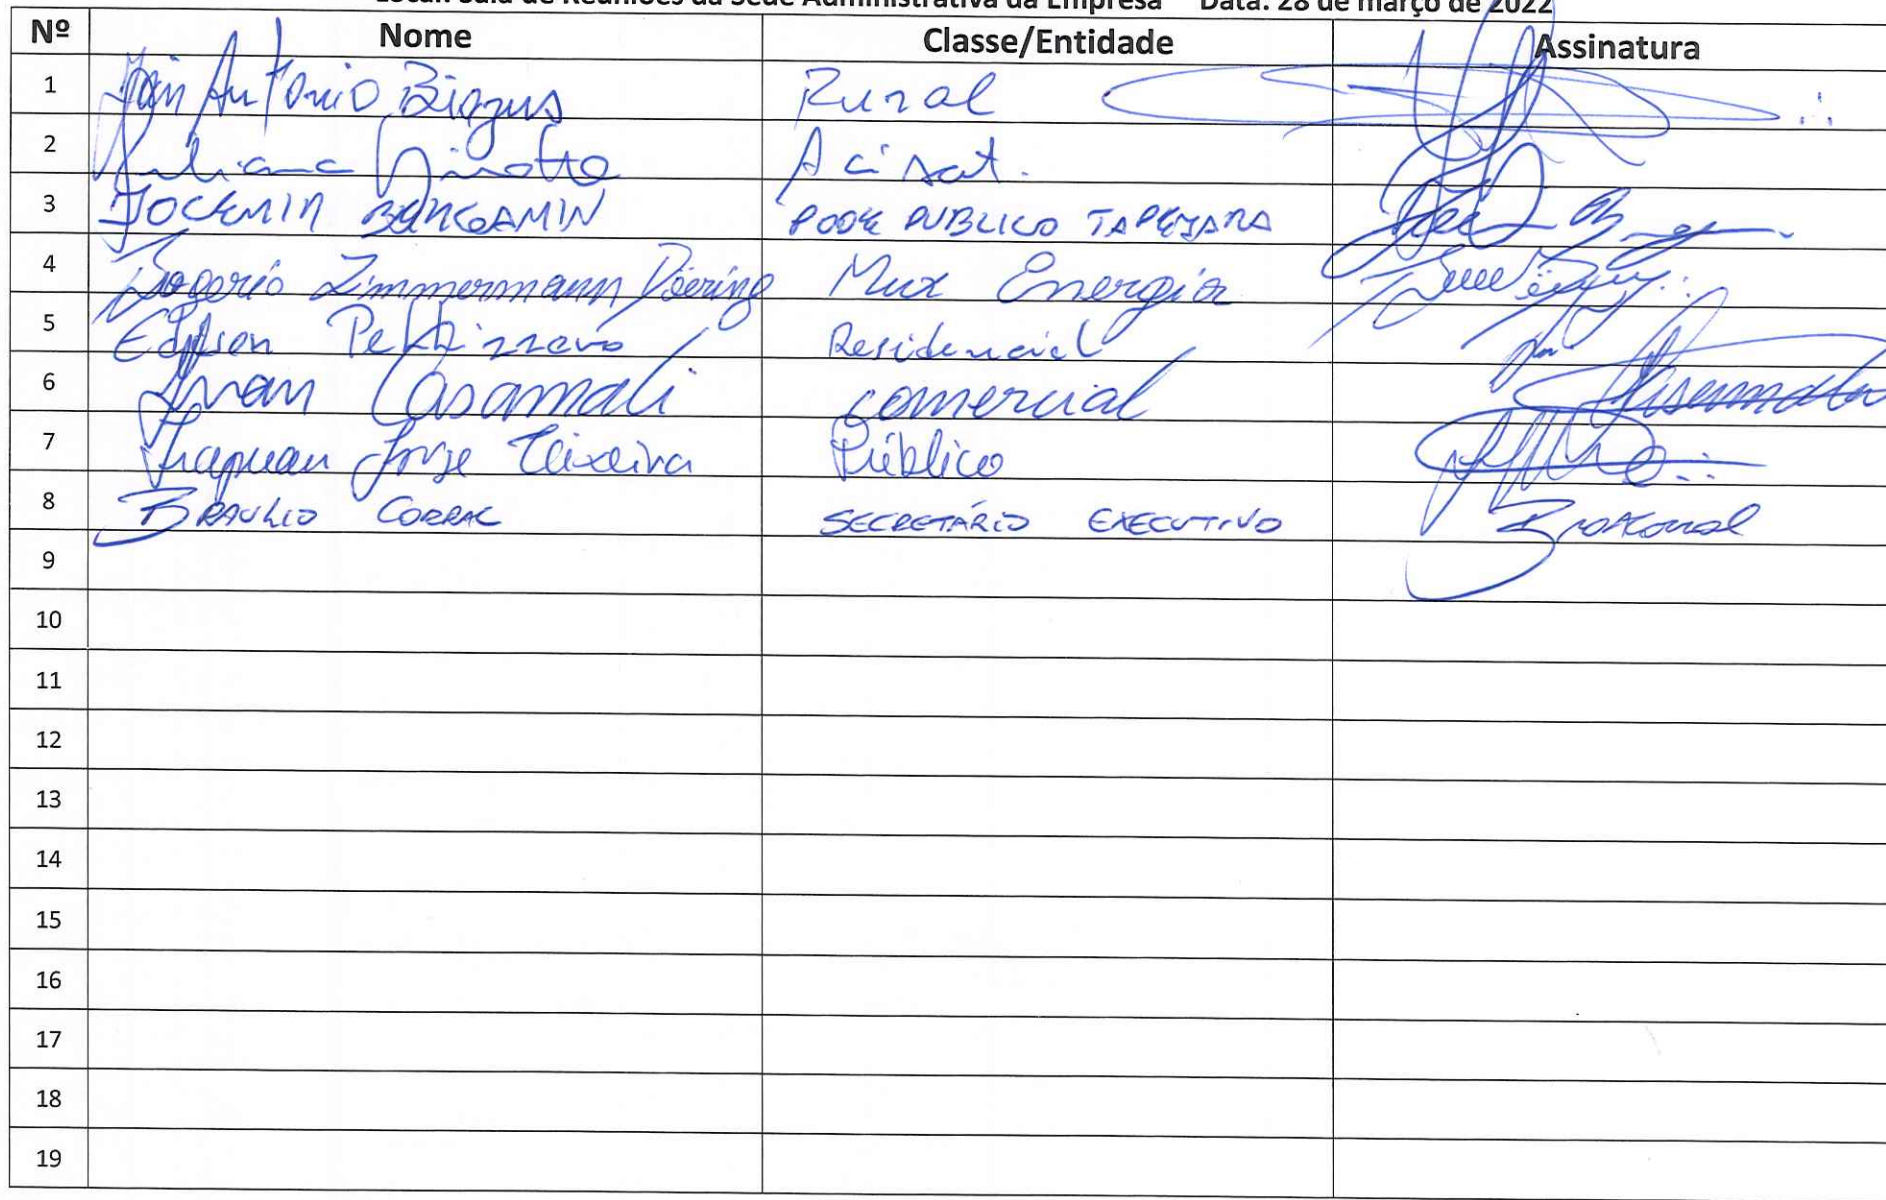 Local: Sala de Reuniões da Sede Administrativa da Empresa Data: 28 de março de 2022
Nº Nome Classe/Entidade Assinatura
1 Antonio Rural
2 Juliana Acisat.
3 PODE PUBLICO TAPEJARA
4 Rogerio Zimmermann Döering Mux Energia
5 Residencial
6 Ivan Casamali comercial
7 Jorge Teixeira Público
8 BRAULIO CORRAL SECRETÁRIO EXECUTIVO
9
10
11
12
13
14
15
16
17
18
19